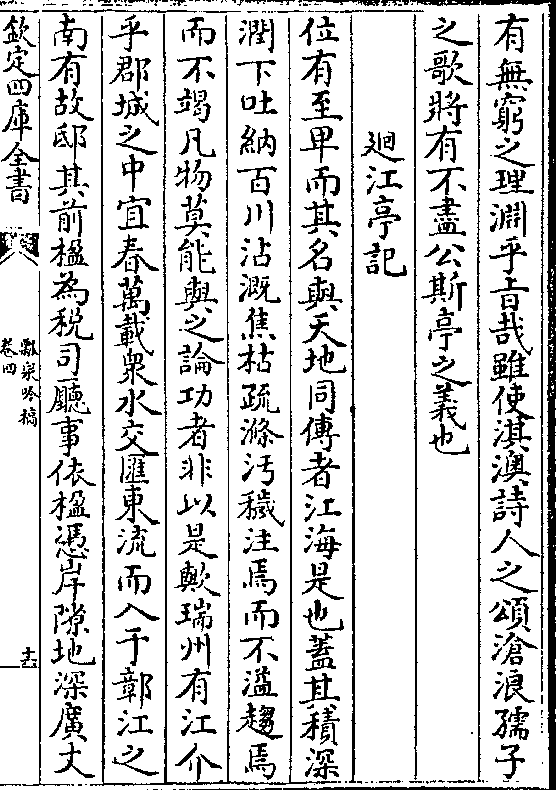 有無窮之理淵乎旨哉雖使淇澳詩人之頌滄浪孺子
之歌將有不盡公斯亭之義也
廻江亭記
位有至卑而其名與天地同傳者江海是也蓋其積深
潤下吐納百川沾溉焦枯疏滌汚穢注焉而不溢趨焉
而不竭凡物莫能與之論功者非以是歟瑞州有江介
乎郡城之中宜春萬載衆水交匯東流而入于彰江之
南有故邸其前楹為稅司廳事依楹憑岸隙地深廣丈
欽定四庫全書
瓢泉吟稿
卷四
十六